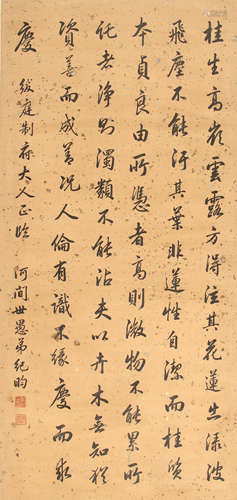 桂生高嶺雲露方得注其花蓮出淥波
飛塵不能汙其葉非蓮性自潔而桂質
本貞良由所憑者高則微物不能累所
託者淨則濁類不能沾夫以卉木無知猶
資善而成善况人倫有識不緣慶而求
慶
紱庭制府大人正臨
河間世愚弟紀昀